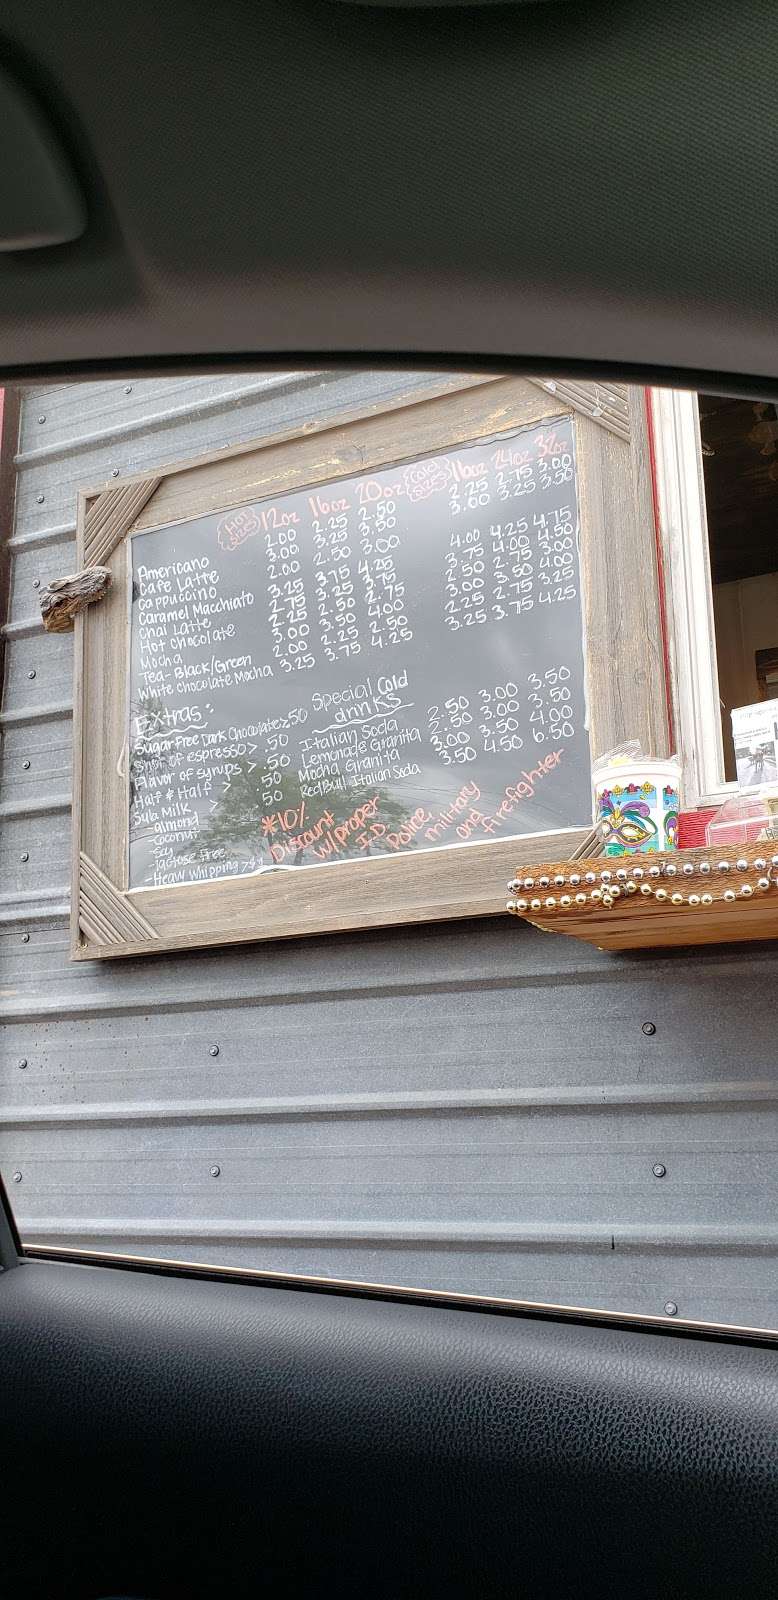 HOT SIZES 12oz 16oz 20oz COLD SIZES 16oz 24oz 32oz
Americano 2.00 2.25 2.50 2.25 2.75 3.00
Cafe Latte 3.00 3.25 3.50 3.00 3.25 3.50
Cappuccino 2.00 2.50 3.00
Caramel Macchiato 3.25 3.75 4.25 4.00 4.25 4.75
Chai Latte 2.75 3.25 3.75 4.00 4.50
Hot chocolate 2.25 2.50 2.75 2.50 2.75 3.00
Mocha 3.00 3.50 4.00 3.00 3.50 4.00
Tea-Black/Green 2.00 2.25 2.50 2.25 2.75 3.25
White chocolate Mocha 3.25 3.75 4.25 3.25 3.75 4.25
Extras:
Sugar Free Dark Chocolate > .50
Shot of espresso > .50
Flavor of syrups > .50
Half & Half > .50
Sub Milk > .50
-almond
-coconut
-Soy
-lactose Free
-Heavy Whipping >
Special Cold
drinks
Italian Soda 2.50 3.00 3.50
Lemonade Granita 2.50 3.00 3.50
Mocha Granita 3.00 3.50 4.00
Red Bull Italian Soda 3.50 4.50 6.50
*10%
Discount
w/proper
I.D.
Police
military
and
firefighter